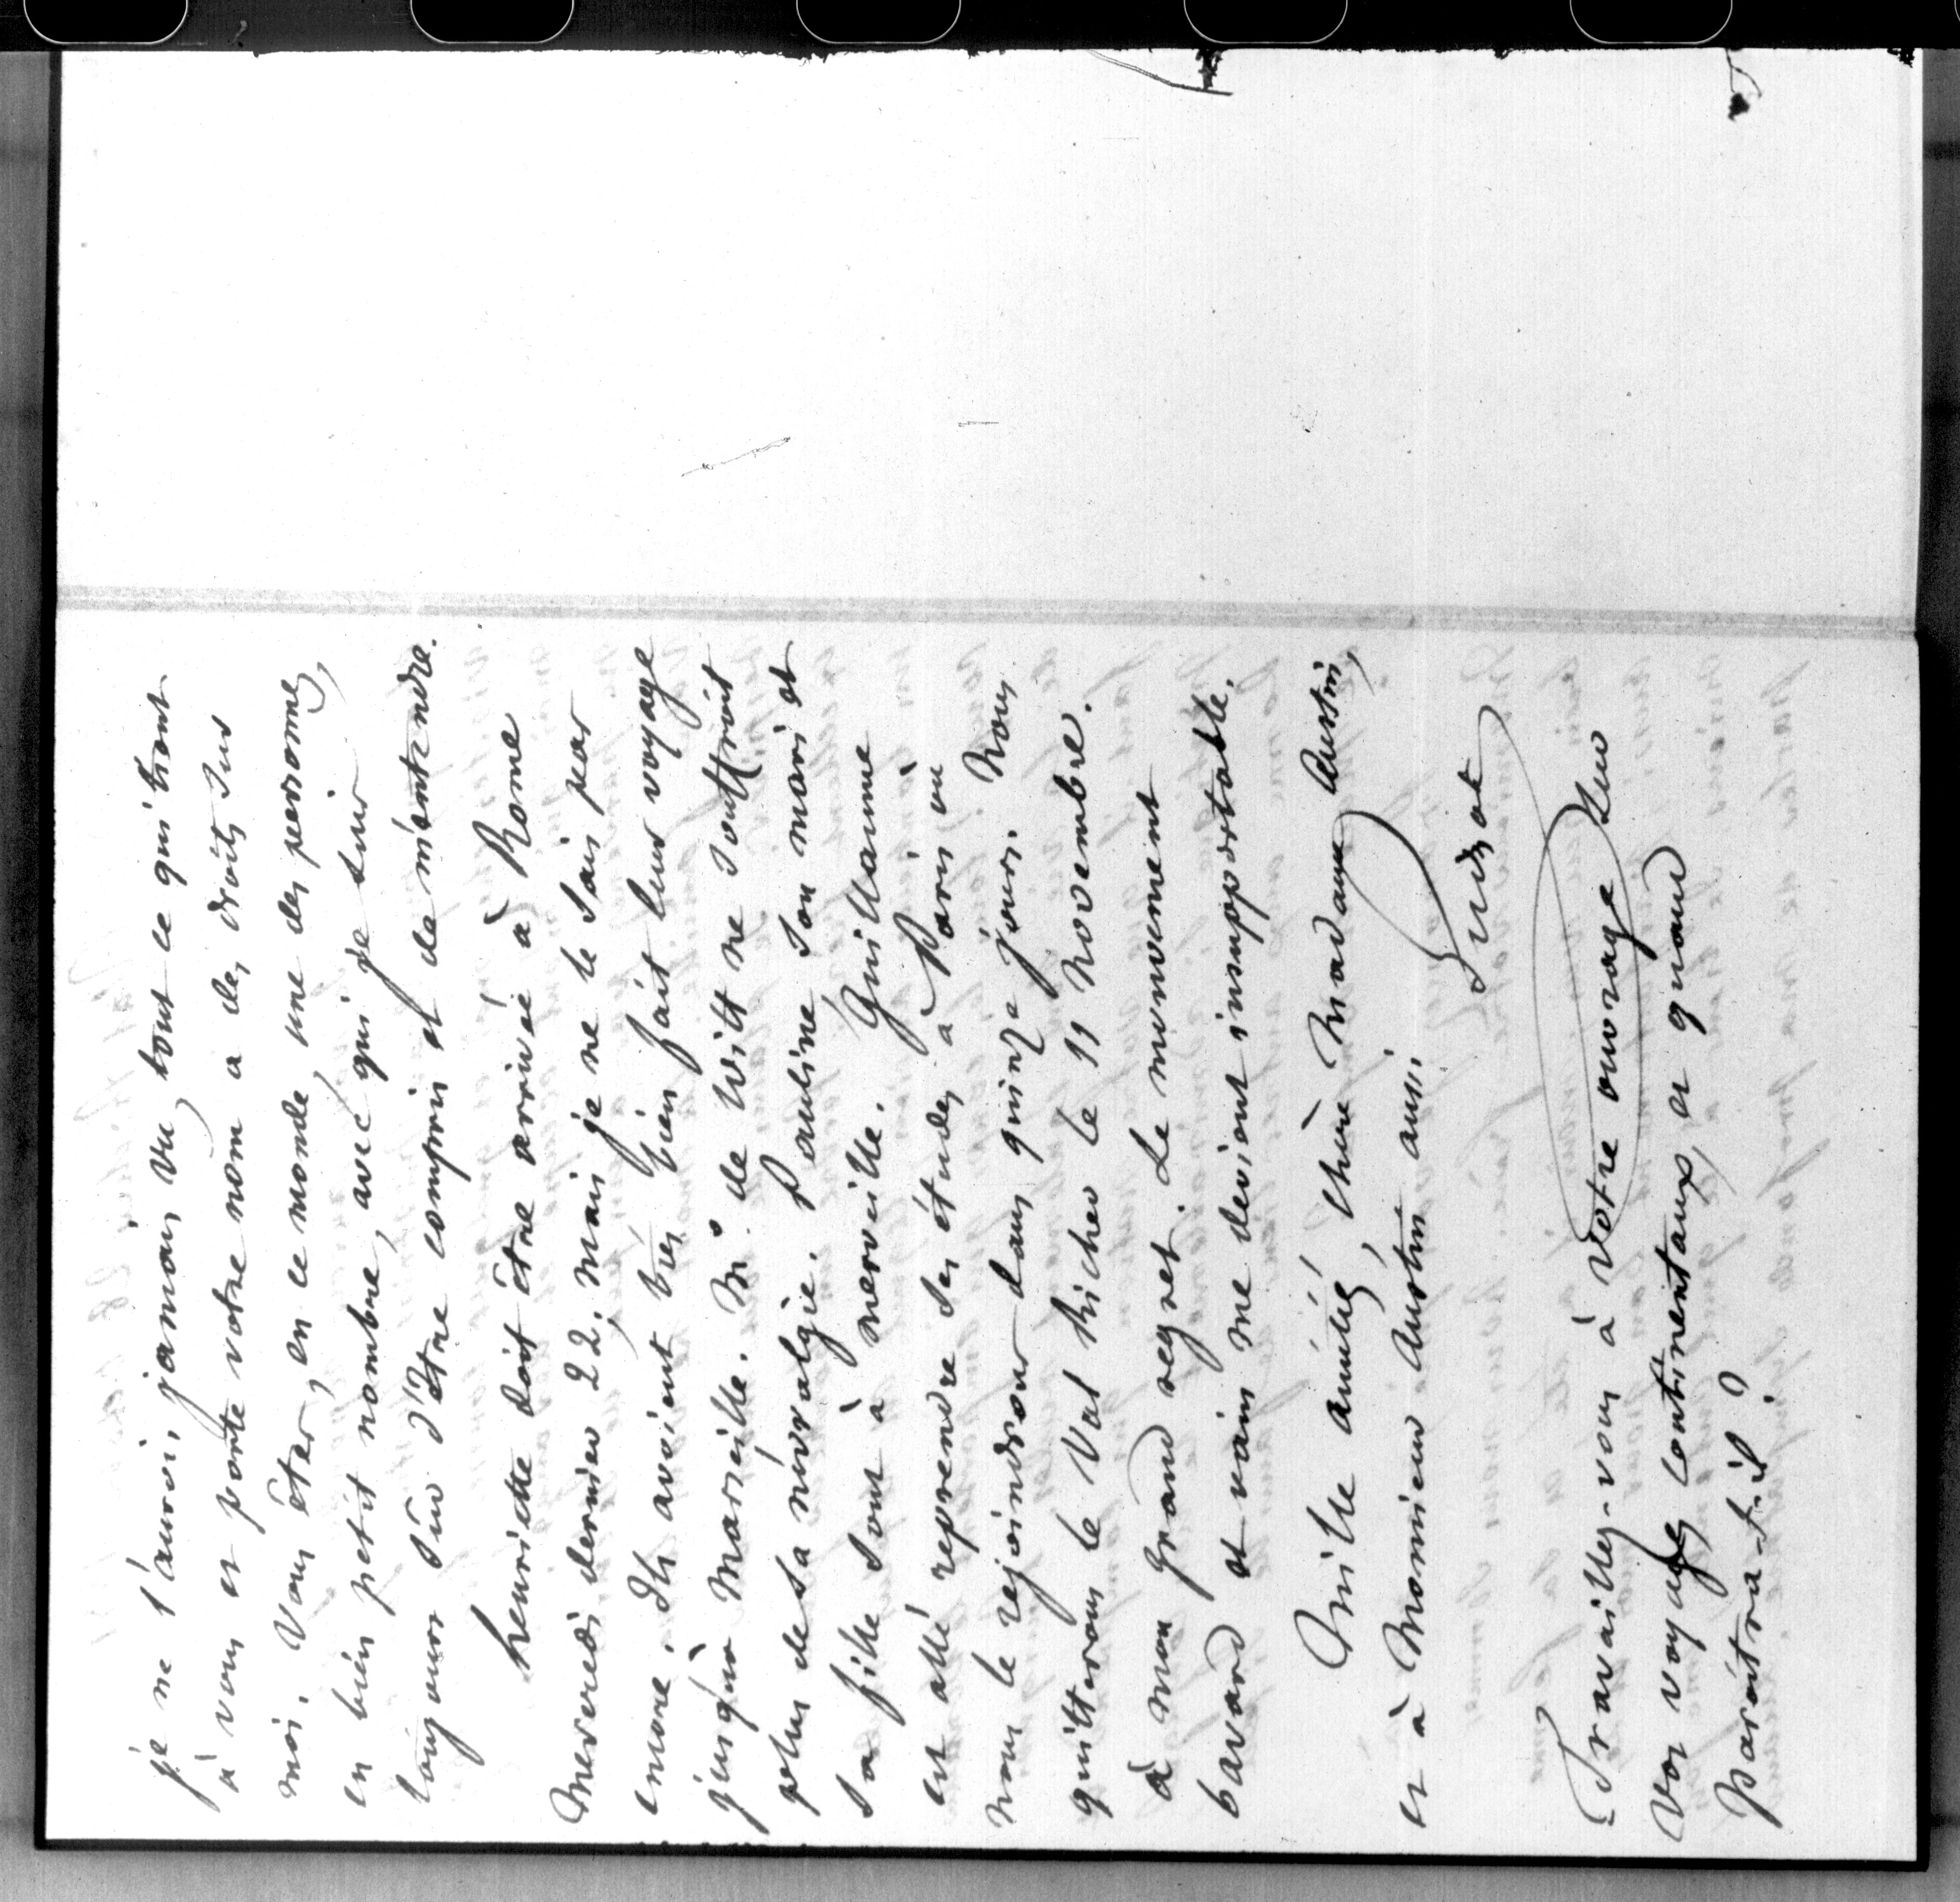 je ne l'aurai jamais vu, tout ce qui tient
à vous et porte votre nom a des droits sur
moi. Vous êtes, en ce monde, une des personnes,
en bien petit nombre, avec qui je suis
toujours sûr d'être compris et de m'entendre.
Henriette doit être arrivée à Rome
mercredi dernier 22, mais je ne le sais pas
encore. Ils avoient très bien fait leur voyage
jusqu'à Marseille. Mr. de Witt ne souffroit
plus de sa névralgie. Pauline son mari et
sa fille sont à merveille. Guillaume
est allé reprendre ses études à Paris où
nous le rejoindrons dans quinze jours. Nous
quitterons le Val Richer le 11 novembre.
à mon grand regret. Le mouvement
bavard et vain me devient insupportable.
Mille amitiés, chère Madame Austin,
et à Monsieur Austin aussi.
Guizot
Travaillez-vous à votre ouvrage sur
vos voyages continentaux, et quand
paroîtra-t-il ?